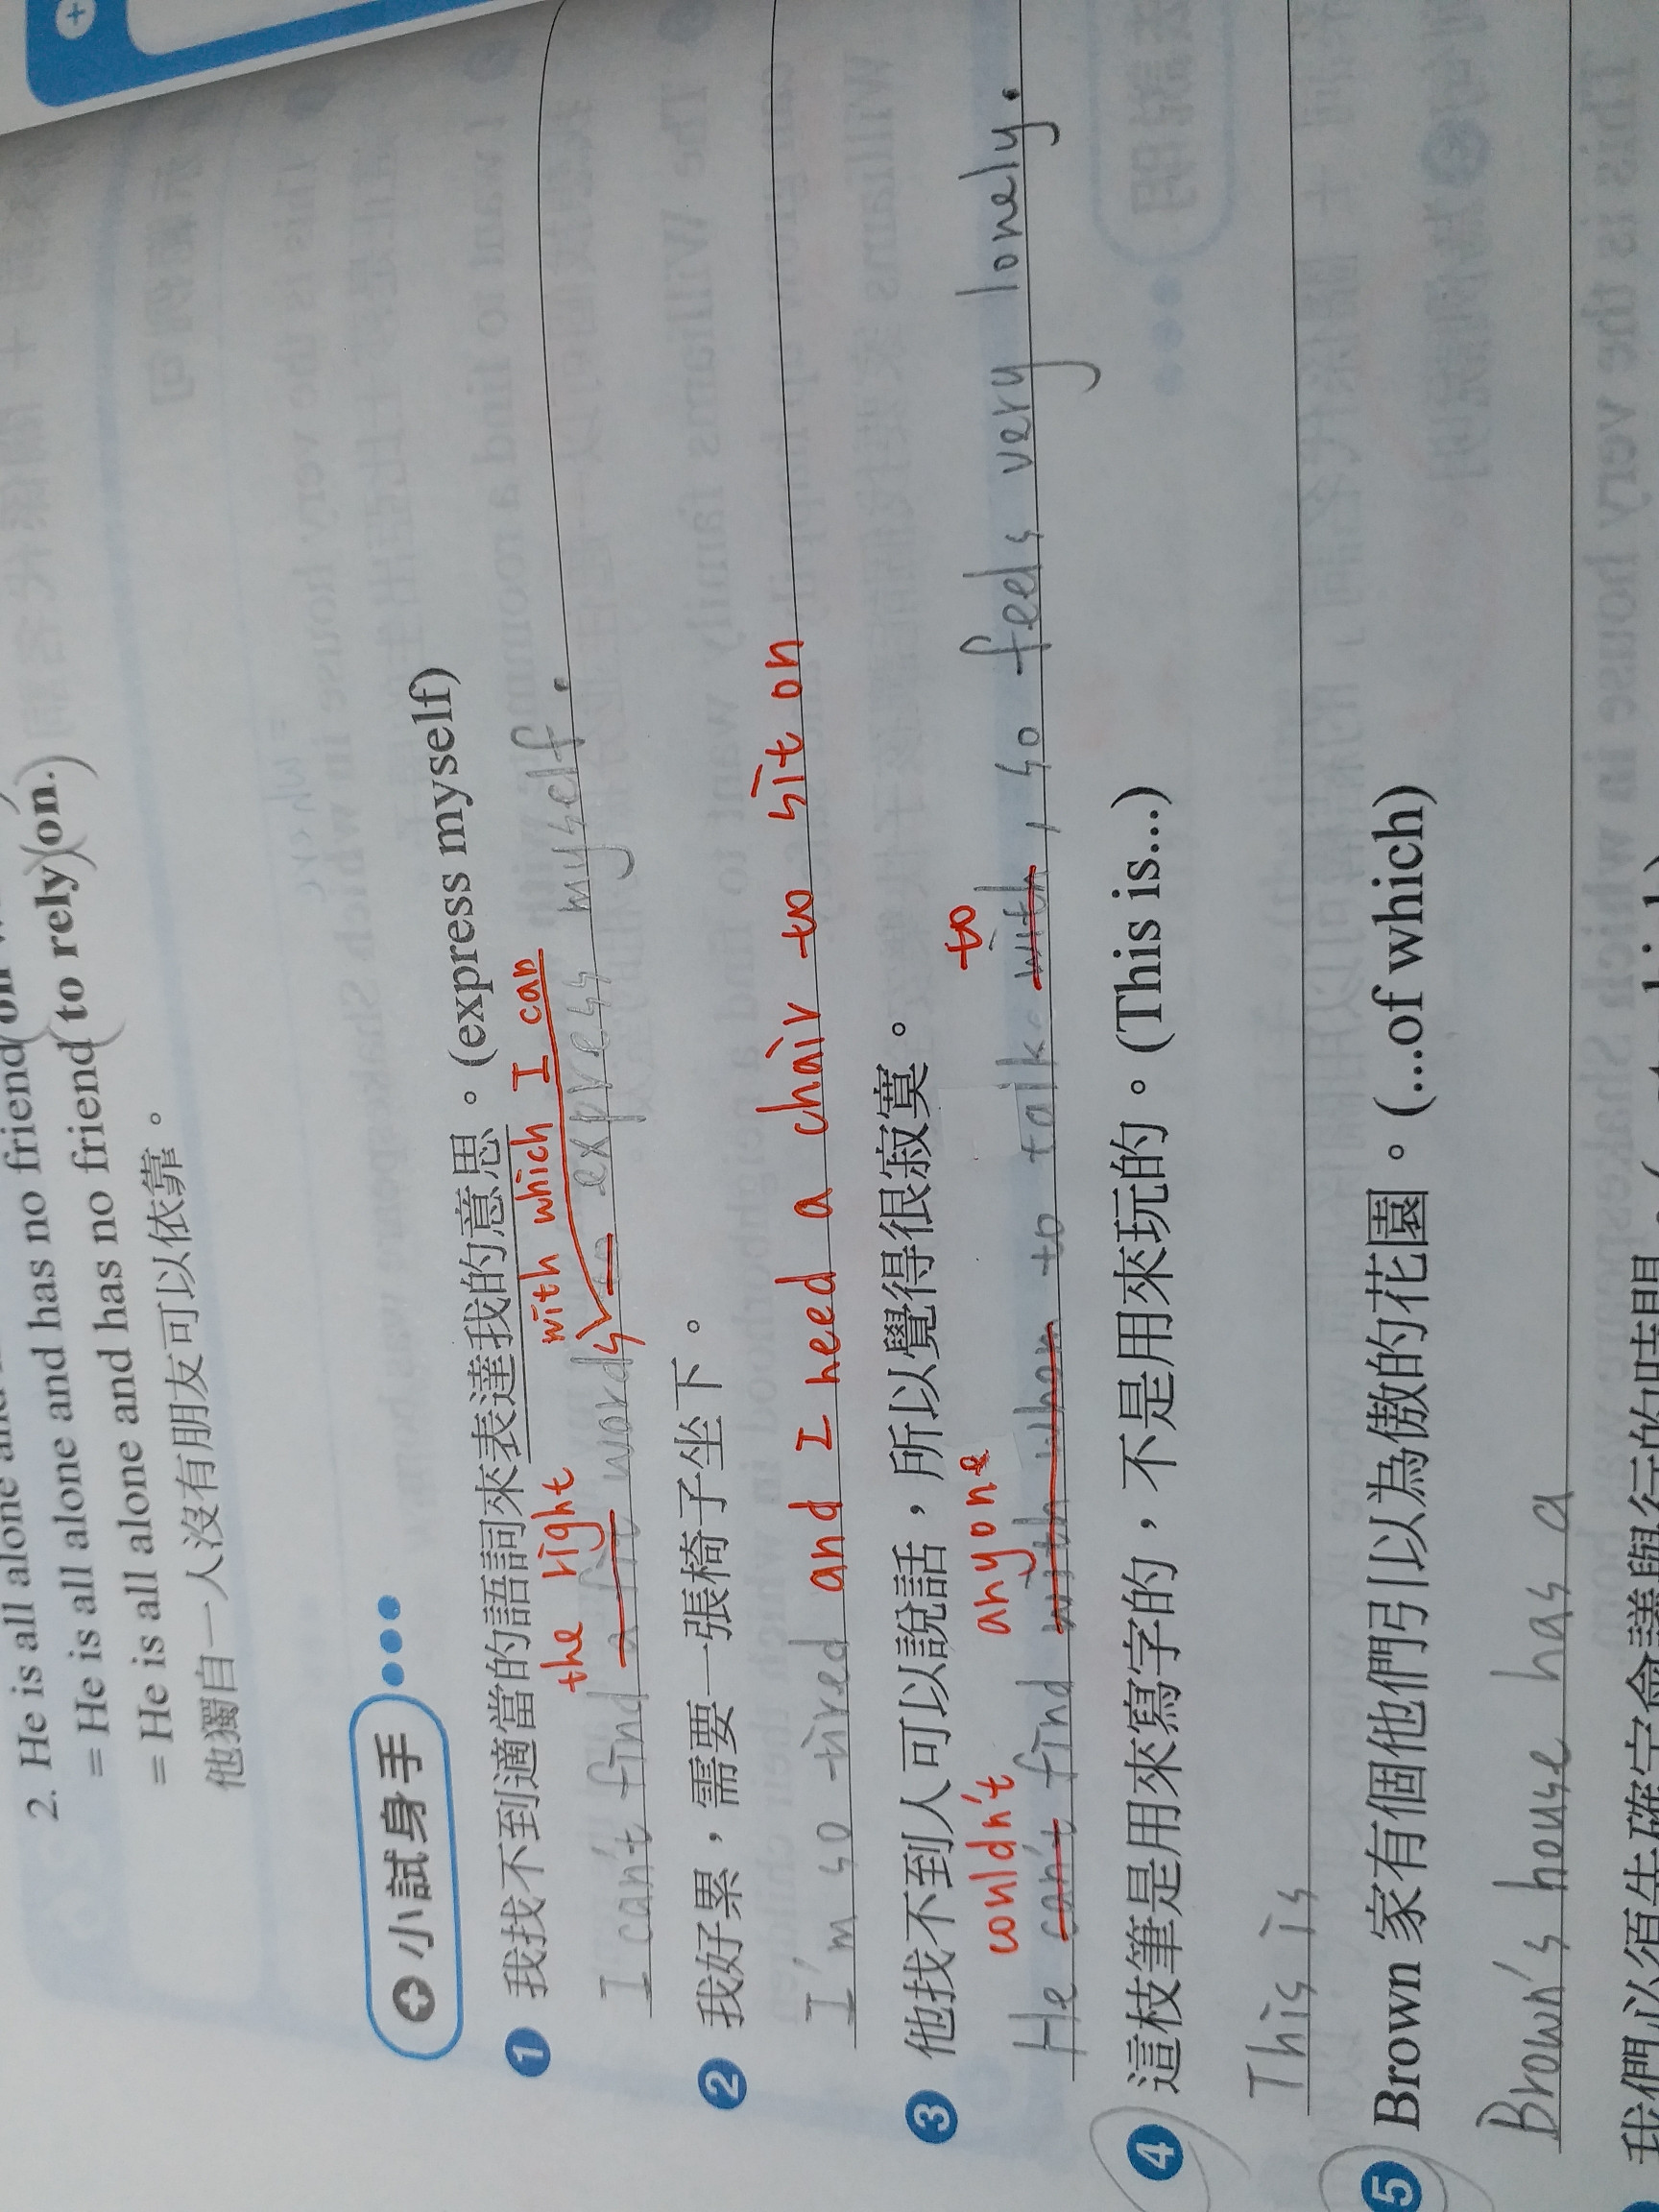 2. He is all alone and has no friend
= He is all alone and has no friend (to rely)(on.)
= He is all alone and has no friend
他獨自一人沒有朋友可以依靠。
小試身手
1 我找不到適當的語詞來表達我的意思。(express myself)
the right with which I can
I can't find words express myself.
2 我好累,需要一張椅子坐下。
I'm so tired and I need a chair to sit on
3 他找不到人可以說話,所以覺得很寂寞。
couldn't anyone to
He can't find with whom to talk with, so feels very lonely.
4 這枝筆是用來寫字的,不是用來玩的。(This is...)
This is
5 Brown 家有個他們引以為傲的花園。(...of which)
Brown's house has a
我們必須先確定會議舉行的時間